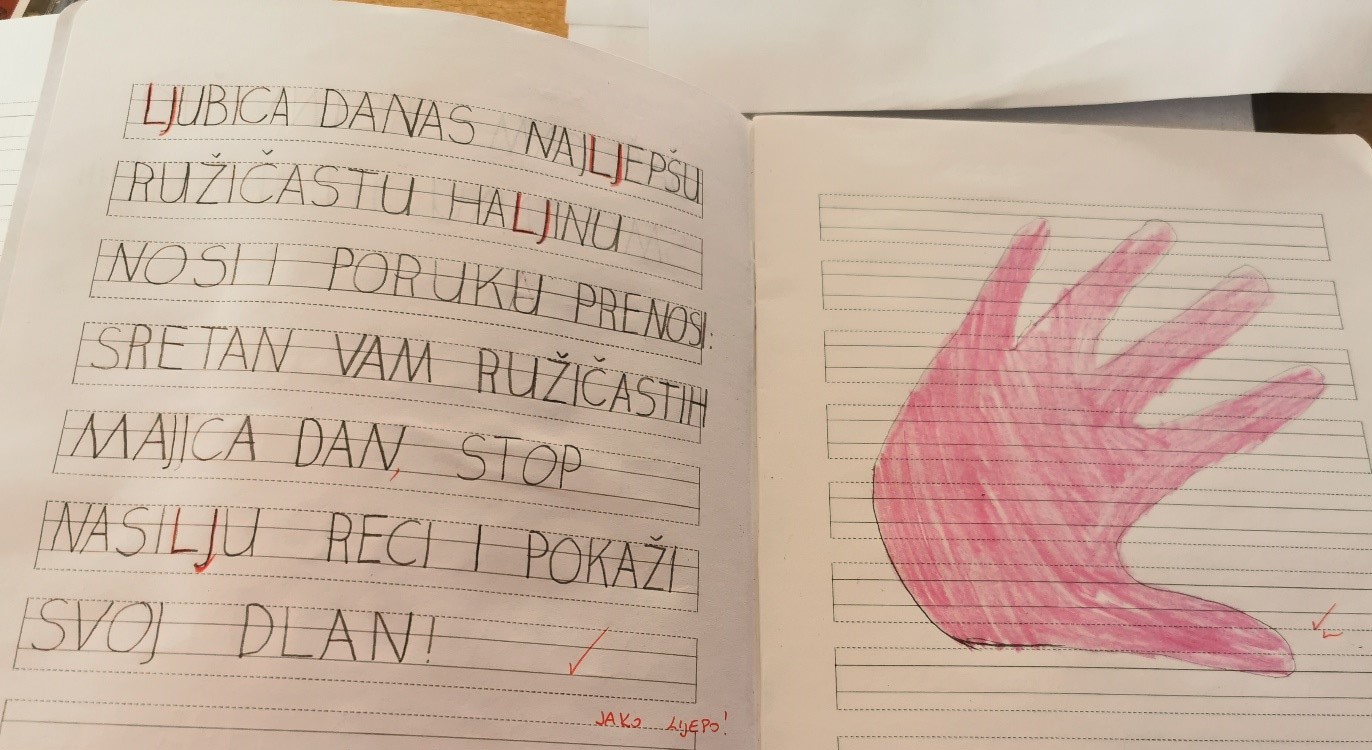 LJUBICA DANAS NAJLJEPŠU
RUŽIČASTU HALJINU
NOSI I PORUKU PRENOSI:
SRETAN VAM RUŽIČASTIH
MAJICA DAN, STOP
NASILJU RECI I POKAŽI
SVOJ DLAN!
JAKO LIJEPO!